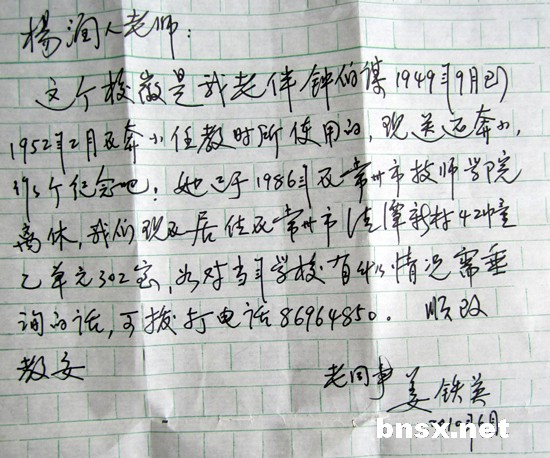 杨润人老师:
这个校徽是我老伴钟伯谋1949年9月到
1952年2月在奔小任教时所使用的,现送还奔小,
作个纪念吧!她已于1986年在常州市技师学院
离休,我们现在居住在常州市清潭新村424幢
乙单元302室,如对当年学校有什么情况需垂
询的话,可拨打电话86964850. 顺致
教安
老同事 姜铁英
2010年6月
bnsx.net